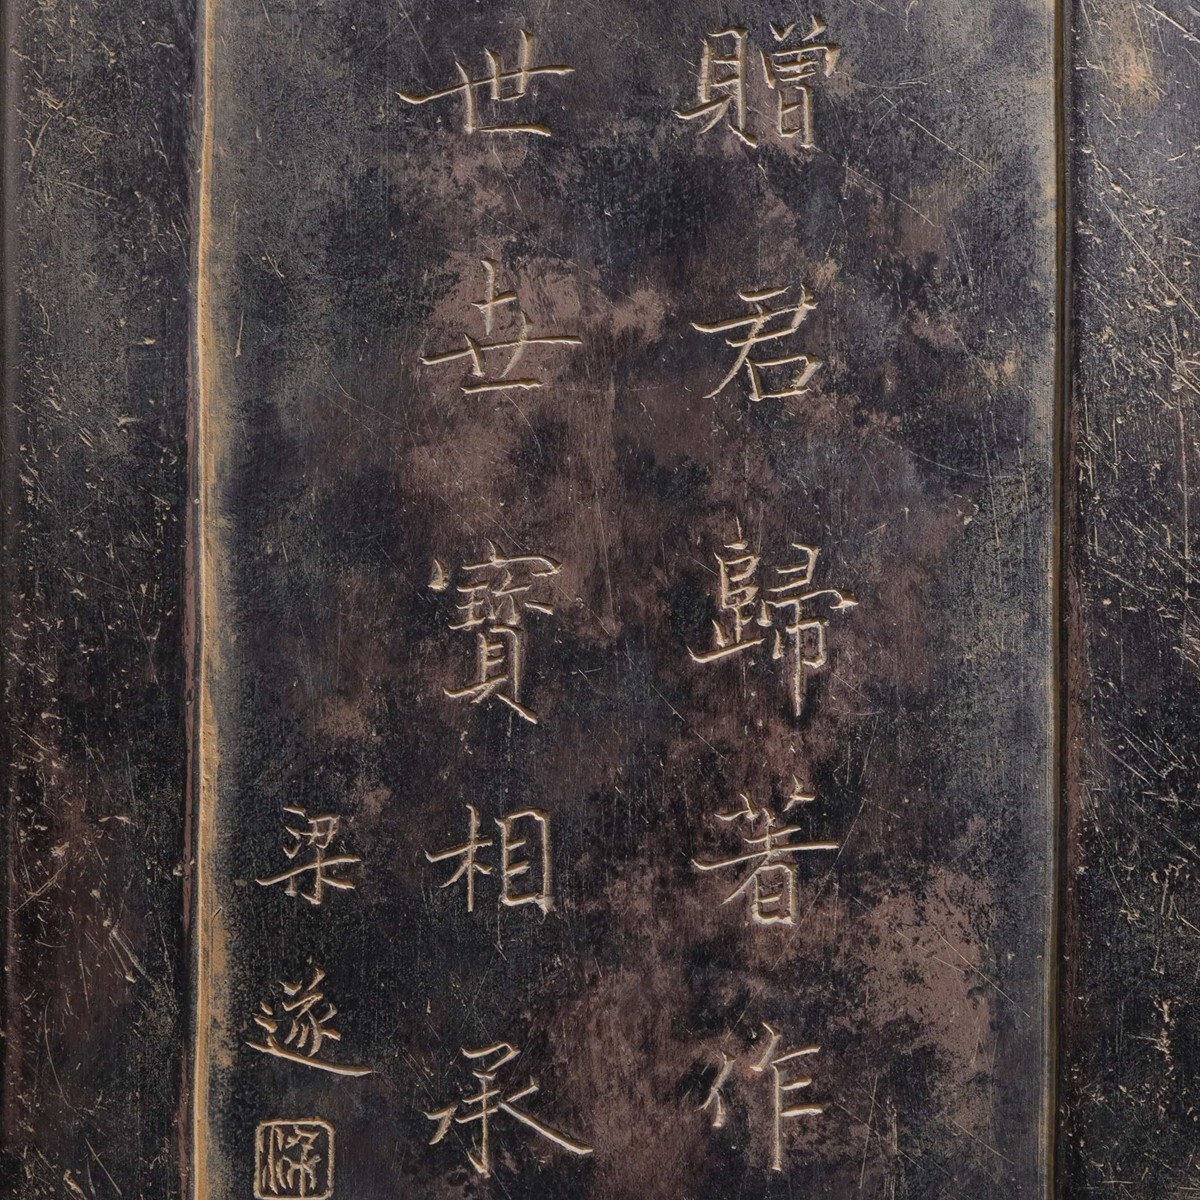 贈君歸著作
世世寶相承
梁遂